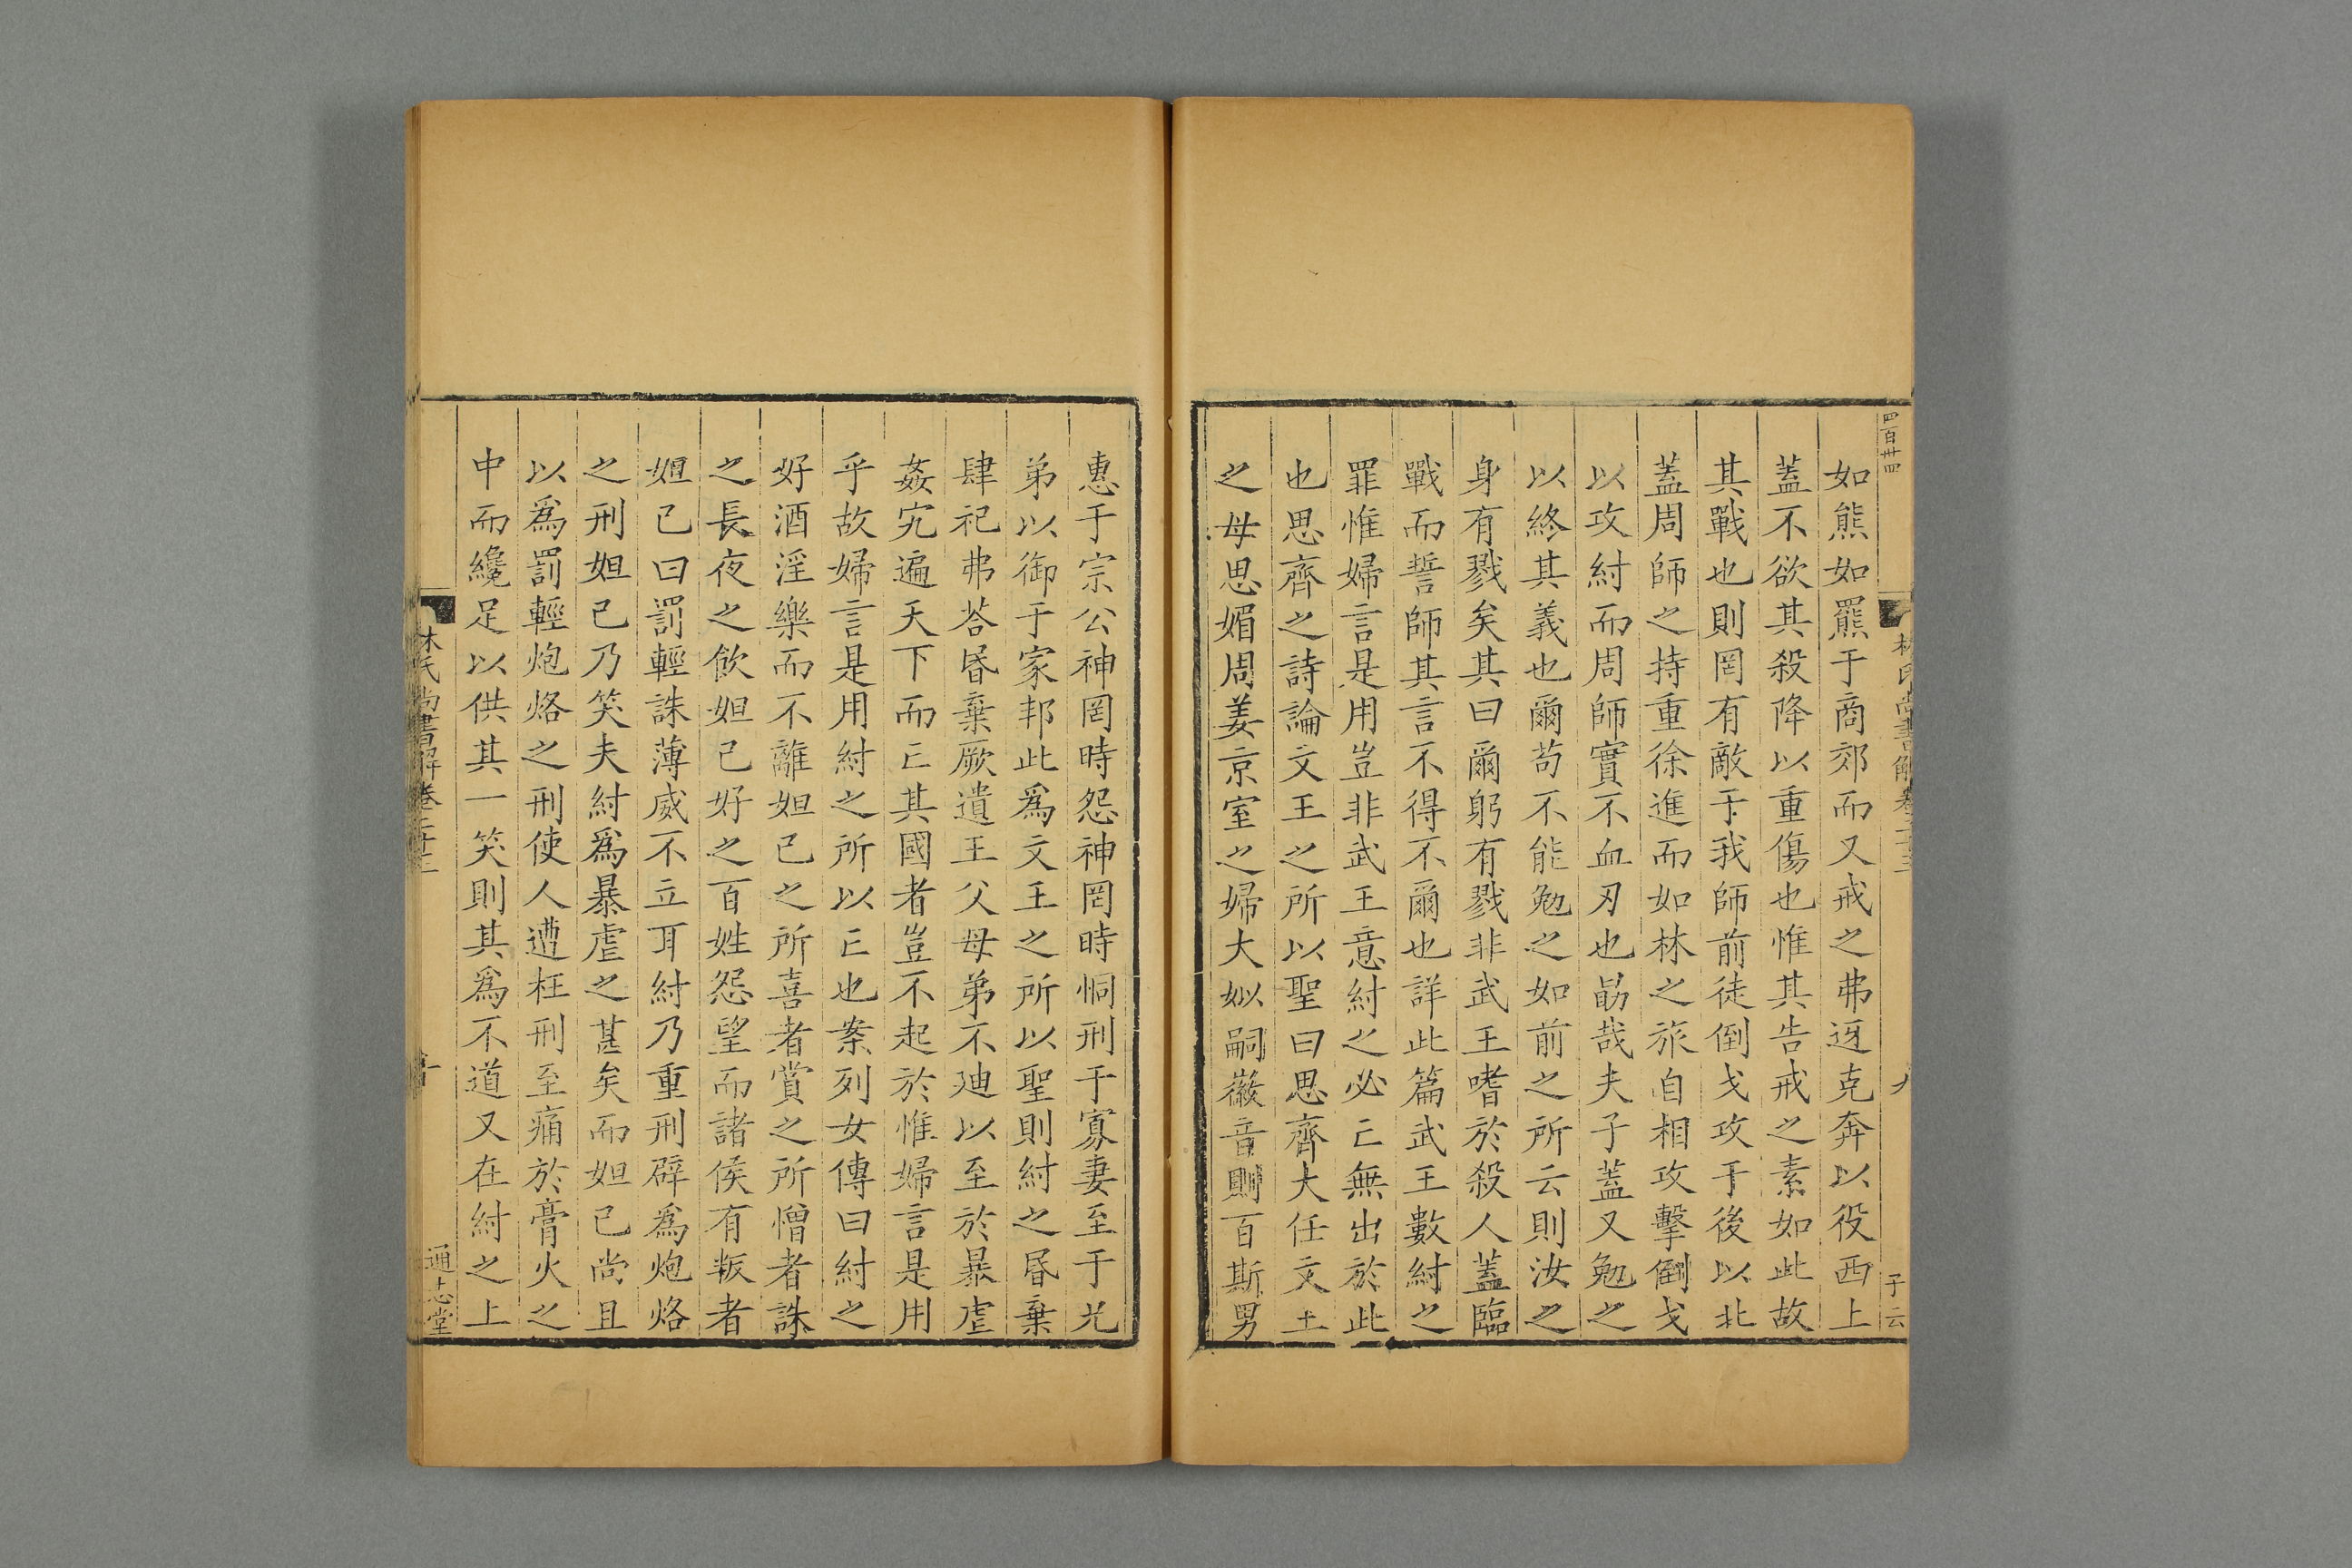 如熊如羆于商郊而又戒之弗迓克奔以役西土
蓋不欲其殺降以重傷也惟其告戒之素如此故
其戰也則罔有敵于我師前徒倒戈攻于後以北
蓋周師之持重徐進而如林之旅自相攻擊倒戈
以攻紂而周師實不血刃也勗哉夫子蓋又勉之
以終其義也爾苟不能勉之如前之所云則汝之
身有戮矣其曰爾躬有戮非武王嗜於殺人蓋臨
戰而誓師其言不得不爾也詳此篇武王數紂之
罪惟婦言是用豈非武王意紂之必亡無出於此
也思齊之詩論文王之所以聖曰思齊大任文王
之母思媚周姜京室之婦大姒嗣徽音則百斯男
惠于宗公神罔時怨神罔時恫刑于寡妻至于兄
弟以御于家邦此為文王之所以聖則紂之昬棄
肆祀弗荅昬棄厥遺王父母弟不迪以至於暴虐
姦宄遍天下而亡其國者豈不起於惟婦言是用
乎故婦言是用紂之所以亡也案列女傳曰紂之
好酒淫樂而不離妲己之所喜者賞之所憎者誅
之長夜之飲妲己好之百姓怨望而諸侯有叛者
妲己曰罰輕誅薄威不立耳紂乃重刑辟為炮烙
之刑妲己乃笑夫紂為暴虐之甚矣而妲己尚且
以為罰輕炮烙之刑使人遭枉刑至痛於膏火之
中而纔足以供其一笑則其為不道又在紂之上
林氏尚書解卷二十三
通志堂